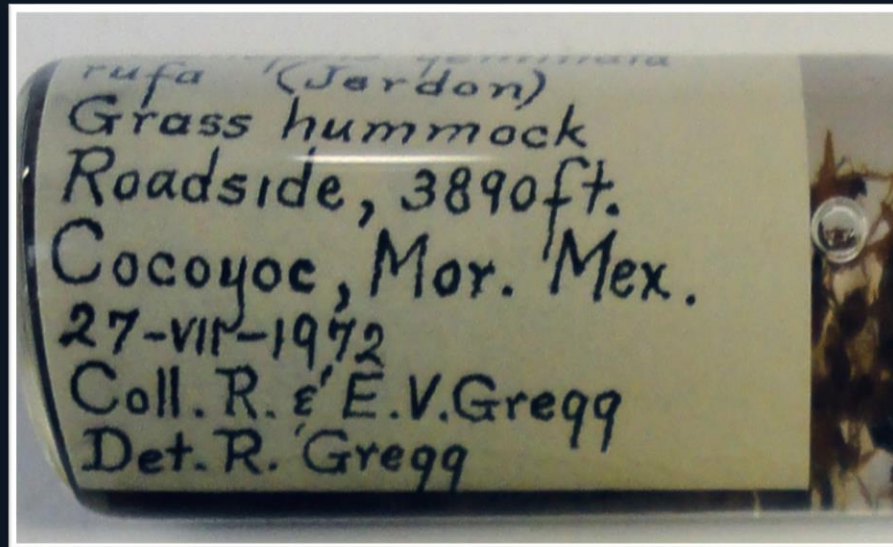 geminata
rufa (Jerdon)
Grass hummock
Roadside, 3890ft.
Cocoyoc, Mor. Mex.
27-VII-1972
Coll. R. & E.V. Gregg
Det. R. Gregg